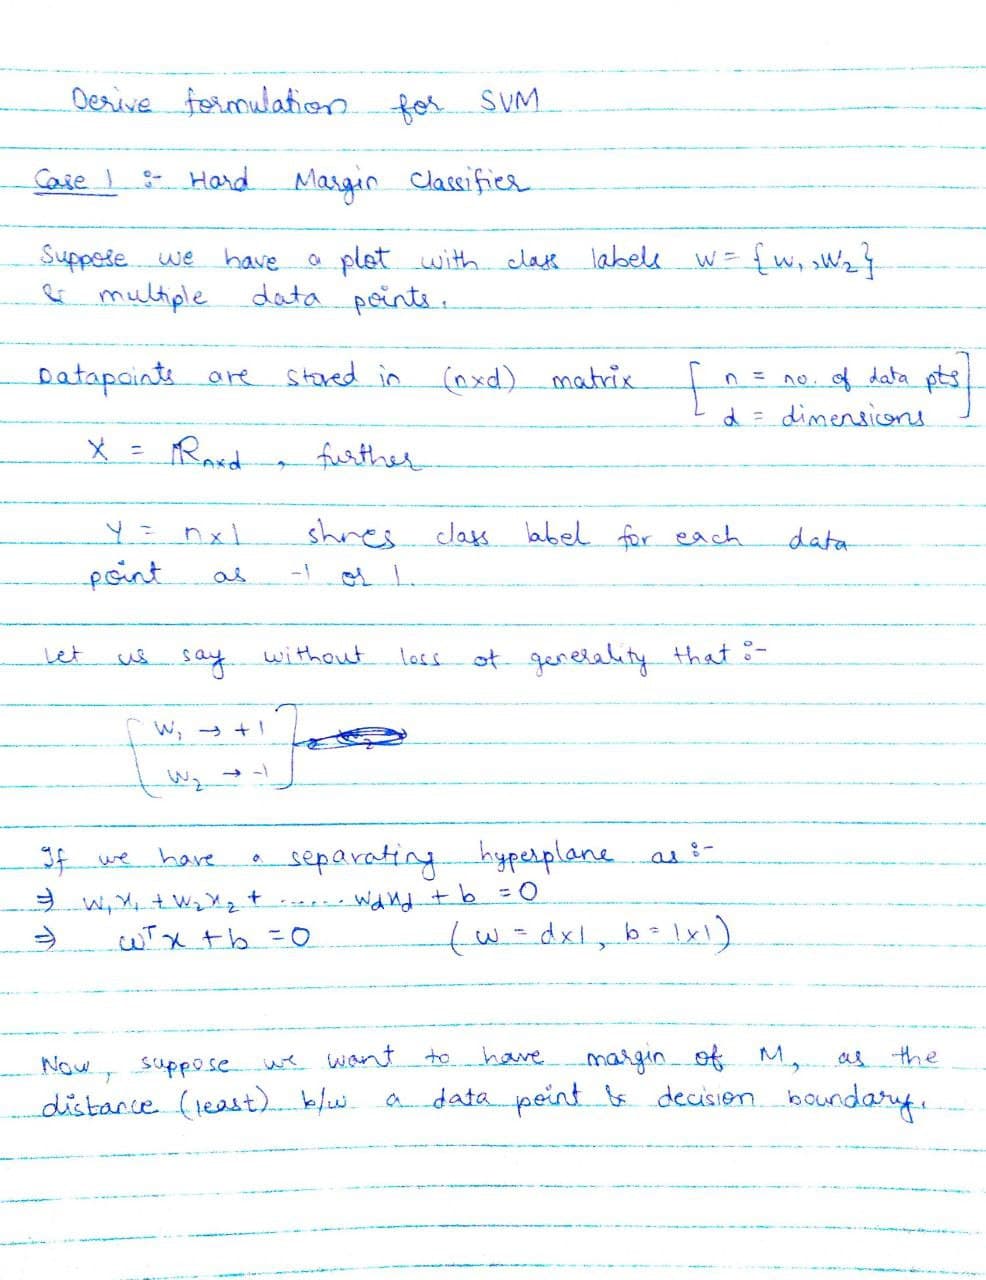 Derive formulation for SVM
Case 1 :- Hard Margin Classifier
Suppose we have a plot with class labels w = {w₁, w₂}
& multiple data points.
Datapoints are stored in (nxd) matrix [ n = no. of data pts
d = dimensions ]
X = ℝnxd , further
Y = nx1 stores class label for each data
point as -1 or 1.
Let us say without loss of generality that :-
[ W₁ → +1
W₂ → -1 ]
If we have a separating hyperplane as :-
⇒ w₁x₁ + w₂x₂ + ...... wdxd + b = 0
⇒ wᵀx + b = 0 (w = dx1, b = 1x1)
Now, suppose we want to have margin of M, as the
distance (least) b/w a data point & decision boundary.